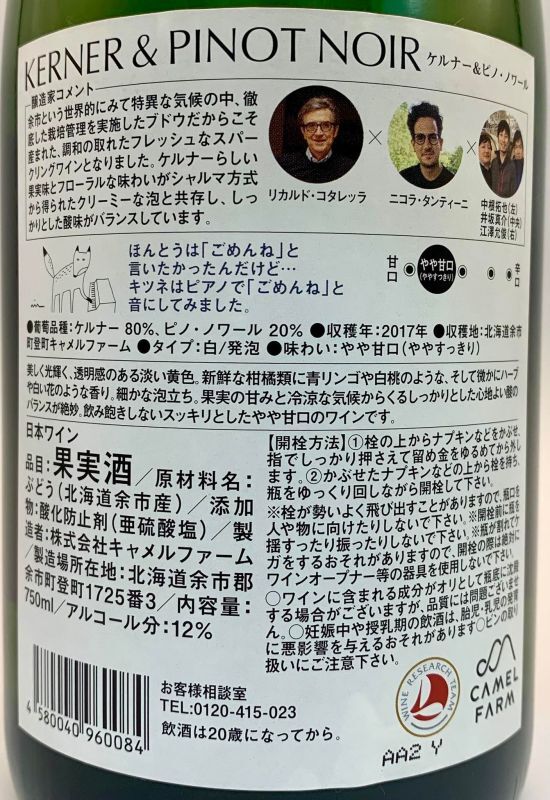 KERNER & PINOT NOIR ケルナー&ピノ・ノワール
醸造家コメント
余市という世界的にみて特異な気候の中、徹
底した栽培管理を実施したブドウだからこそ
産まれた、調和の取れたフレッシュなスパー
クリングワインとなりました。ケルナーらしい
果実味とフローラルな味わいがシャルマ方式
から得られたクリーミーな泡と共存し、しっ
かりとした酸味がバランスしています。
×
×
リカルド・コタレッラ
ニコラ・タンティーニ
中根拓也(左)
井坂真介(中央)
江澤允俊(右)
ほんとうは「ごめんね」と
言いたかったんだけど…
キツネはピアノで「ごめんね」と
音にしてみました。
甘口
やや甘口
(ややすっきり)
辛口
●葡萄品種:ケルナー 80%、ピノ・ノワール 20% ●収穫年:2017年 ●収穫地:北海道余市
町登町キャメルファーム ●タイプ:白/発泡 ●味わい:やや甘口(ややすっきり)
美しく光輝く、透明感のある淡い黄色。新鮮な柑橘類に青リンゴや白桃のような、そして微かにハーブ
や白い花のような香り。細かな泡立ち。果実の甘みと冷涼な気候からくるしっかりとした心地よい酸の
バランスが絶妙。飲み飽きしないスッキリとしたやや甘口のワインです。
日本ワイン
品目:果実酒/原材料名:
ぶどう(北海道余市産)/添加
物:酸化防止剤(亜硫酸塩)/製
造者:株式会社キャメルファーム
/製造場所在地:北海道余市郡
余市町登町1725番3/内容量:
750ml/アルコール分:12%
【開栓方法】①栓の上からナプキンなどをかぶせ、
指でしっかり押さえて留め金をゆるめてから外し
ます。②かぶせたナプキンなどの上から栓を持ち、
瓶をゆっくり回しながら開栓して下さい。
※栓が勢いよく飛び出すことがありますので、瓶口を
人や物に向けたりしないで下さい。※開栓前に瓶を
揺すったり振ったりしないで下さい。※瓶が割れてケ
ガをするおそれがありますので、開栓の際は絶対に
ワインオープナー等の器具を使用しないで下さい。
○ワインに含まれる成分がオリとして瓶底に沈殿
する場合がございますが、品質には問題ございませ
ん。○妊娠中や授乳期の飲酒は、胎児・乳児の発育
に悪影響を与えるおそれがあります○ビンの取り
扱いにご注意下さい。
4 580040 960084
お客様相談室
TEL:0120-415-023
飲酒は20歳になってから。
WINE RESEARCH TEAM
CAMEL
FARM
AA2 Y